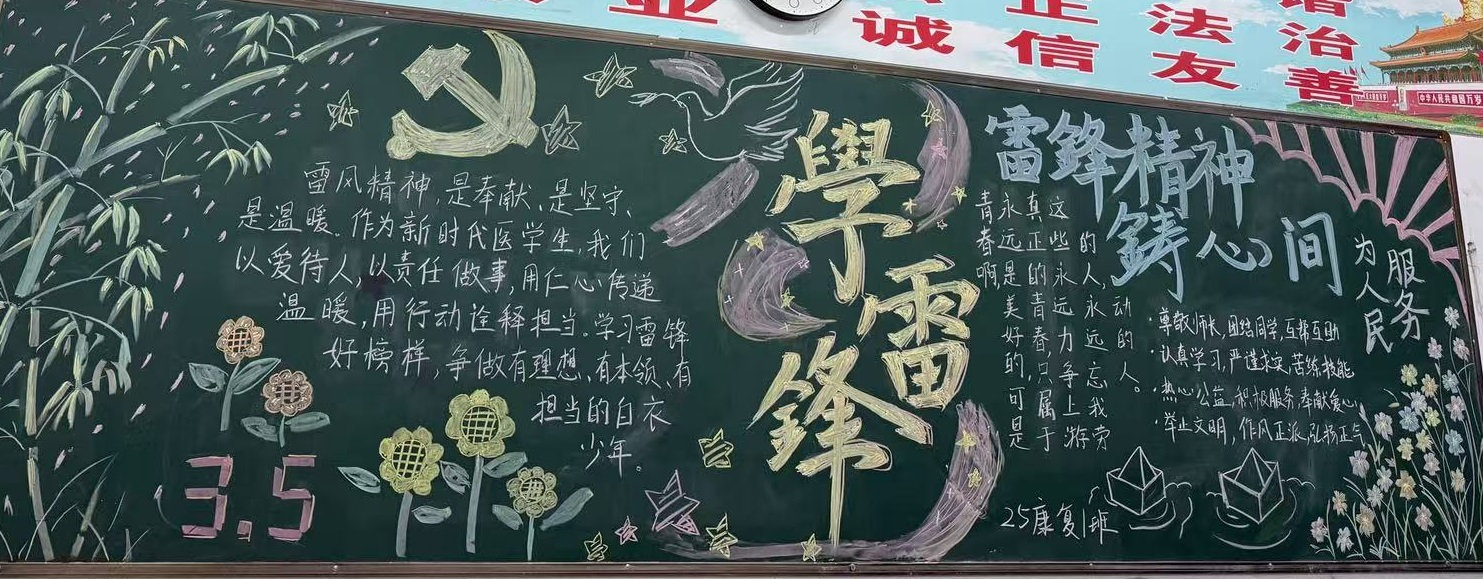 业
诚
正
信
法
友
谐
治
善
中华人民共和国万岁
雷风精神,是奉献、是坚守、
是温暖。作为新时代医学生,我们
以爱待人,以责任做事,用仁心传递
温暖,用行动诠释担当。学习雷锋
好榜样,争做有理想、有本领、有
担当的白衣
少年。
3.5
學
雷
鋒
雷鋒精神
鑄心间
青春啊,
永远是美好的,可是
真正的青春,只属于
这些永远力争上游
的人,永远忘我劳
动的人。
为人民
服务
·尊敬师长,团结同学,互帮互助
·认真学习,严谨求实,苦练技能
·热心公益,积极服务,奉献爱心
·举止文明,作风正派,弘扬正气
25康复1班